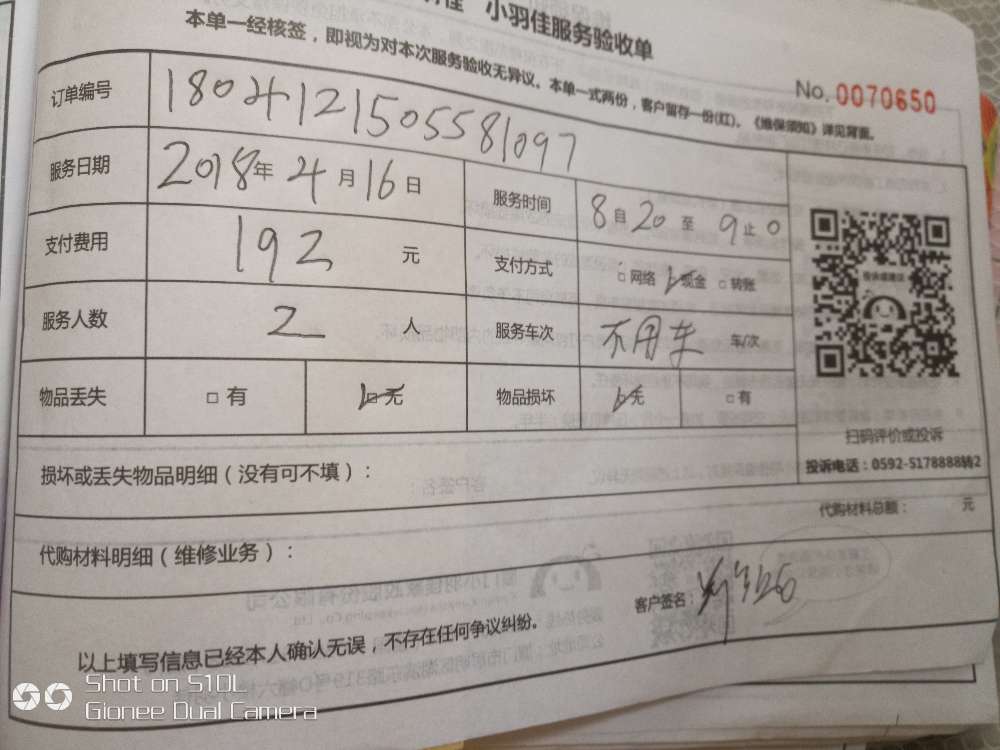 小羽佳服务验收单
本单一经核签，即视为对本次服务验收无异议。本单一式两份，客户留存一份(红)。《维保须知》详见背面。
No. 0070650
订单编号 180412150558 1097
服务日期 2018年 4月 16日 服务时间 8自20至 9止0
支付费用 192 元 支付方式 □网络 现金 □转账
服务人数 2 人 服务车次 不用车 车/次
物品丢失 □有 □无 物品损坏 无 □有
扫码评价或投诉
投诉电话：0592-5178888转2
损坏或丢失物品明细（没有可不填）：
代购材料总额： 元
代购材料明细（维修业务）：
客户签名：
以上填写信息已经本人确认无误，不存在任何争议纠纷。
Shot on S10L
Gionee Dual Camera